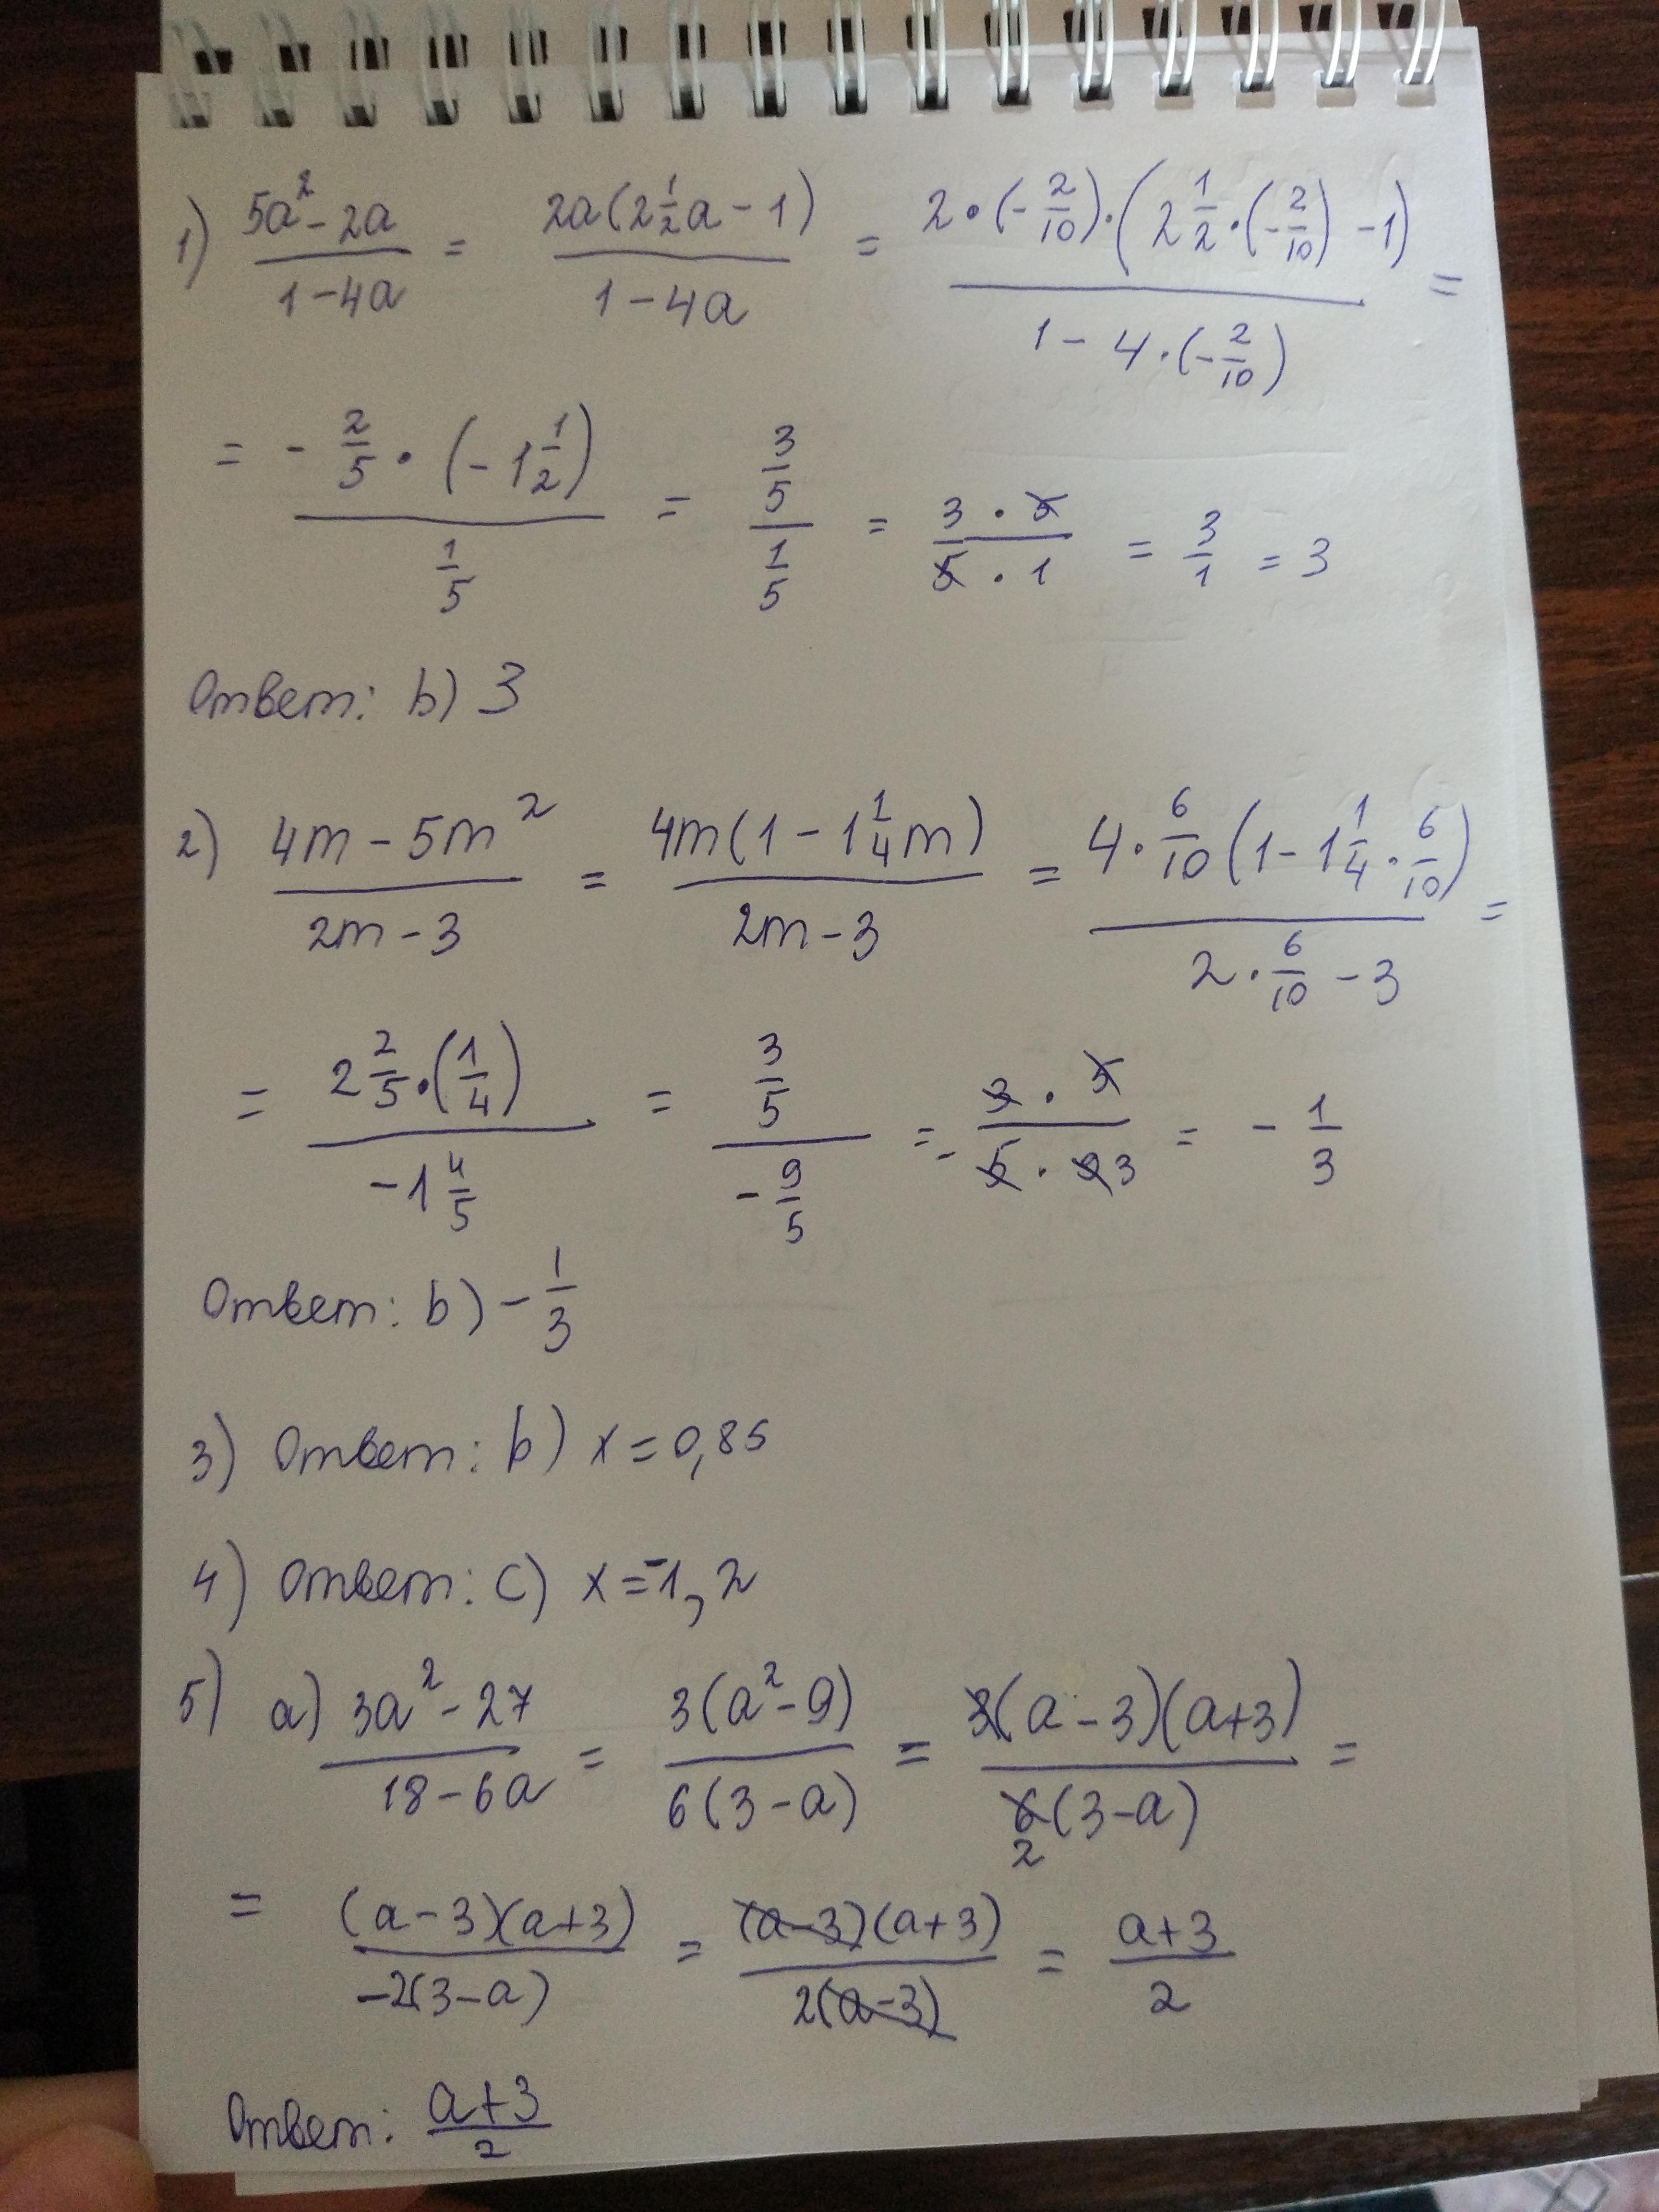 1) (5a² - 2a)/(1 - 4a) = (2a(2 1/2 a - 1))/(1 - 4a) = (2 · (-2/10) · (2 1/2 · (-2/10) - 1))/(1 - 4 · (-2/10)) =
= (-2/5 · (-1 1/2))/(1/5) = (3/5)/(1/5) = (3 · 5)/(5 · 1) = 3/1 = 3
Ответ: b) 3
2) (4m - 5m²)/(2m - 3) = (4m(1 - 1 1/4 m))/(2m - 3) = (4 · 6/10 (1 - 1 1/4 · 6/10))/(2 · 6/10 - 3) =
= (2 2/5 · (1/4))/(-1 4/5) = (3/5)/(-9/5) = -(3 · 5)/(5 · 9 3) = -1/3
Ответ: b) -1/3
3) Ответ: b) x = 0,85
4) Ответ: c) x = -1,2
5) a) (3a² - 27)/(18 - 6a) = (3(a² - 9))/(6(3 - a)) = (3(a - 3)(a + 3))/(6 2 (3 - a)) =
= ((a - 3)(a + 3))/(-2(3 - a)) = ((a - 3)(a + 3))/(2(a - 3)) = (a + 3)/2
Ответ: (a + 3)/2